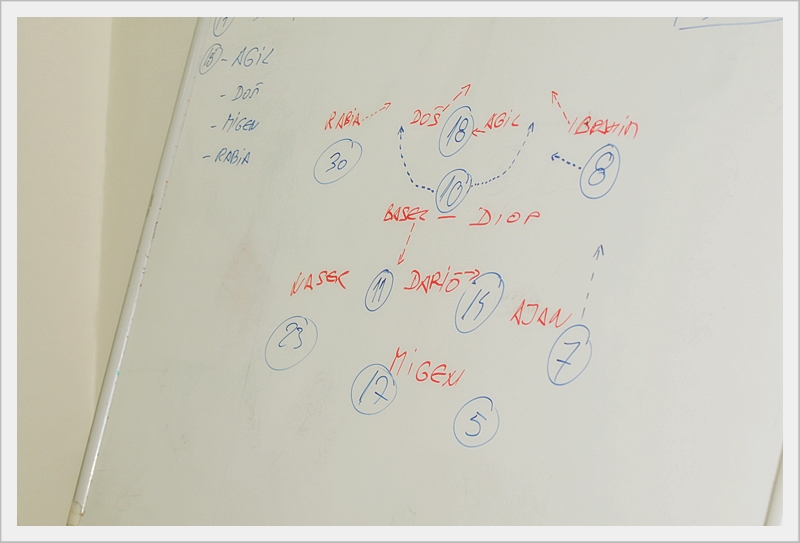 15 - AGIL
- DOŠ
- MIGEN
- RABIA
RABIA DOŠ AGIL IBRAHIM
30 18 8
10
BASEL - DIOP
NASER 11 DARIO 14 AJAN
23 7
MIGEN
17 5